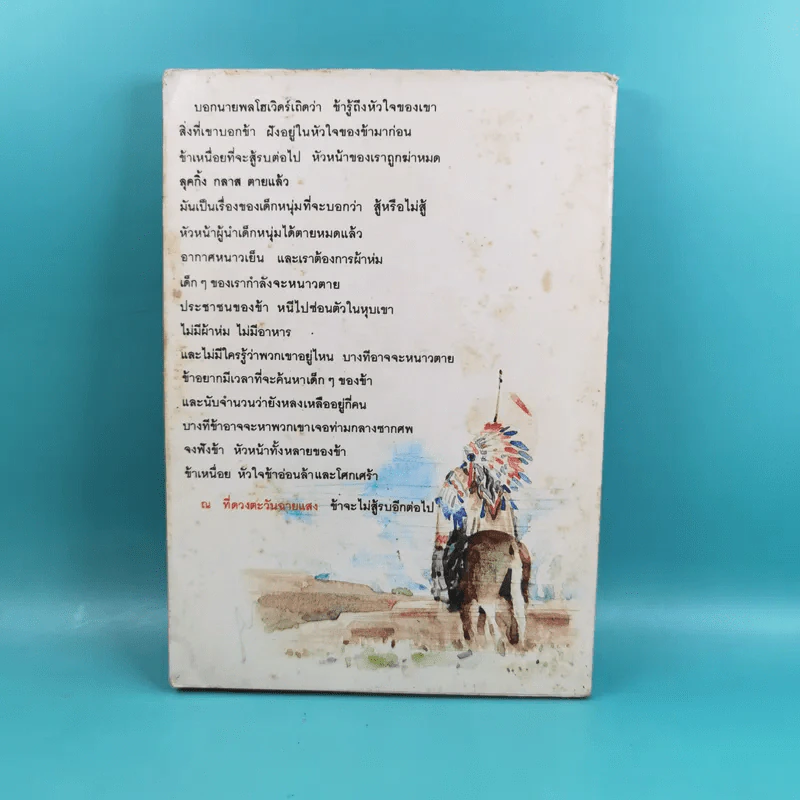 บอกนายพลโฮเวิดร์เถิดว่า ข้ารู้ถึงหัวใจของเขา
สิ่งที่เขาบอกข้า ฝังอยู่ในหัวใจของข้ามาก่อน
ข้าเหนื่อยที่จะสู้รบต่อไป หัวหน้าของเราถูกฆ่าหมด
ลุคกิ้ง กลาส ตายแล้ว
มันเป็นเรื่องของเด็กหนุ่มที่จะบอกว่า สู้หรือไม่สู้
หัวหน้าผู้นำเด็กหนุ่มได้ตายหมดแล้ว
อากาศหนาวเย็น และเราต้องการผ้าห่ม
เด็ก ๆ ของเรากำลังจะหนาวตาย
ประชาชนของข้า หนีไปซ่อนตัวในหุบเขา
ไม่มีผ้าห่ม ไม่มีอาหาร
และไม่มีใครรู้ว่าพวกเขาอยู่ไหน บางทีอาจจะหนาวตาย
ข้าอยากมีเวลาที่จะค้นหาเด็ก ๆ ของข้า
และนับจำนวนว่ายังหลงเหลืออยู่กี่คน
บางทีข้าอาจจะหาพวกเขาเจอท่ามกลางซากศพ
จงฟังข้า หัวหน้าทั้งหลายของข้า
ข้าเหนื่อย หัวใจข้าอ่อนล้าและโศกเศร้า
ณ ที่ดวงตะวันฉายแสง ข้าจะไม่สู้รบอีกต่อไป